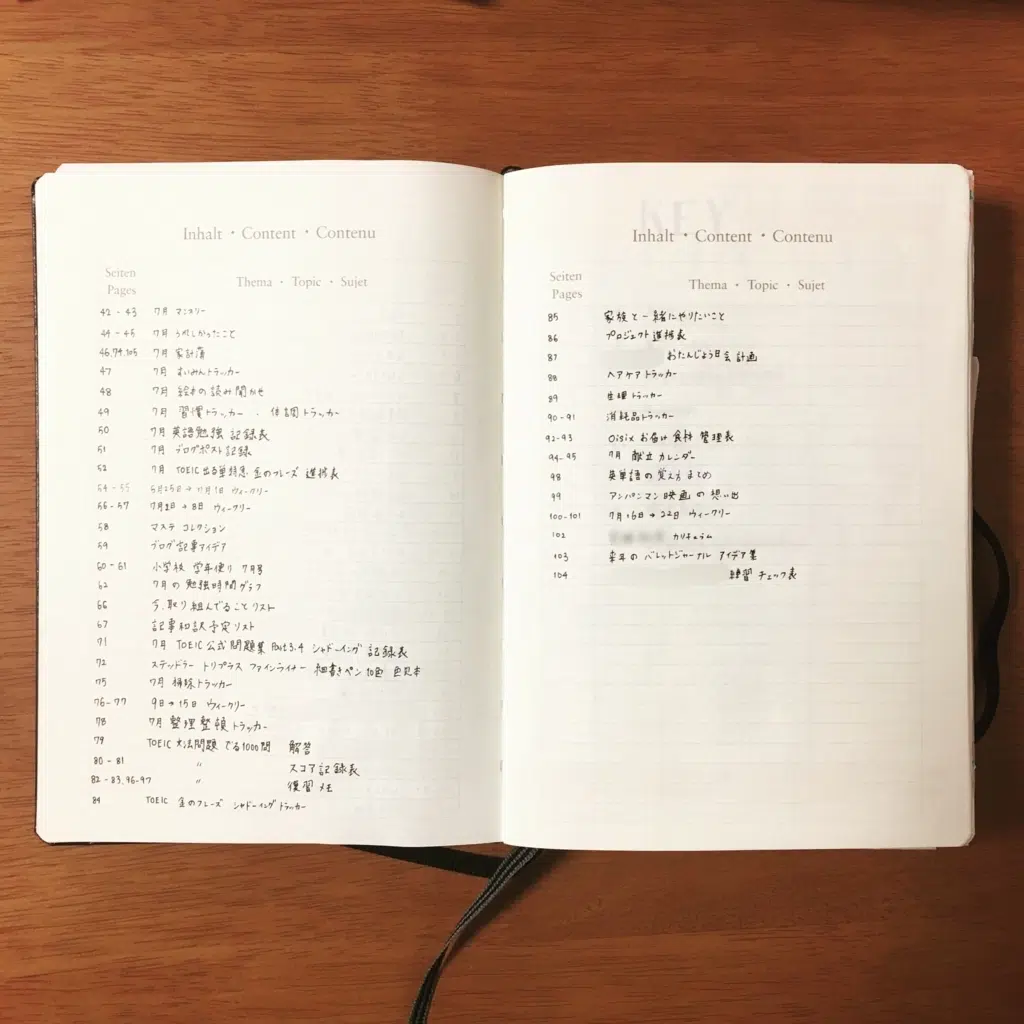 Inhalt · Content · Contenu
Seiten
Pages
Thema · Topic · Sujet
42 - 43 7月 マンスリー
44 - 45 7月 うれしかったこと
46,74,105 7月 家計簿
47 7月 すいみんトラッカー
48 7月 絵本の読み聞かせ
49 7月 習慣トラッカー ・ 体調トラッカー
50 7月 英語勉強 記録表
51 7月 ブログポスト記録
52 7月 TOEIC 出る単特急 金のフレーズ 進捗表
54 - 55 6月25日→7月1日 ウィークリー
56 - 57 7月2日→8日 ウィークリー
58 マステ コレクション
59 ブログ記事アイデア
60 - 61 小学校 学年便り 7月号
62 7月の勉強時間グラフ
66 今、取り組んでることリスト
67 記事和訳予定リスト
71 7月 TOEIC 公式問題集 Part3.4 シャドーイング 記録表
72 ステッドラー トリプラス ファインライナー 細書きペン 10色 色見本
75 7月 掃除トラッカー
76 - 77 9日→15日 ウィークリー
78 7月 整理整頓トラッカー
79 TOEIC 文法問題 でる1000問 解答
80 - 81 〃 スコア記録表
82 - 83,96-97 〃 復習メモ
84 TOEIC 金のフレーズ シャドーイングトラッカー
Inhalt · Content · Contenu
Seiten
Pages
Thema · Topic · Sujet
85 家族と一緒にやりたいこと
86 プロジェクト進捗表
87 おたんじょう日会計画
88 ヘアケアトラッカー
89 生理トラッカー
90 - 91 消耗品トラッカー
92 - 93 Oisix お届け食料 管理表
94 - 95 7月 献立カレンダー
98 英単語の覚え方まとめ
99 アンパンマン映画の想い出
100 - 101 7月16日→22日 ウィークリー
102 カリキュラム
103 来年のバレットジャーナル アイデア集
104 練習チェック表